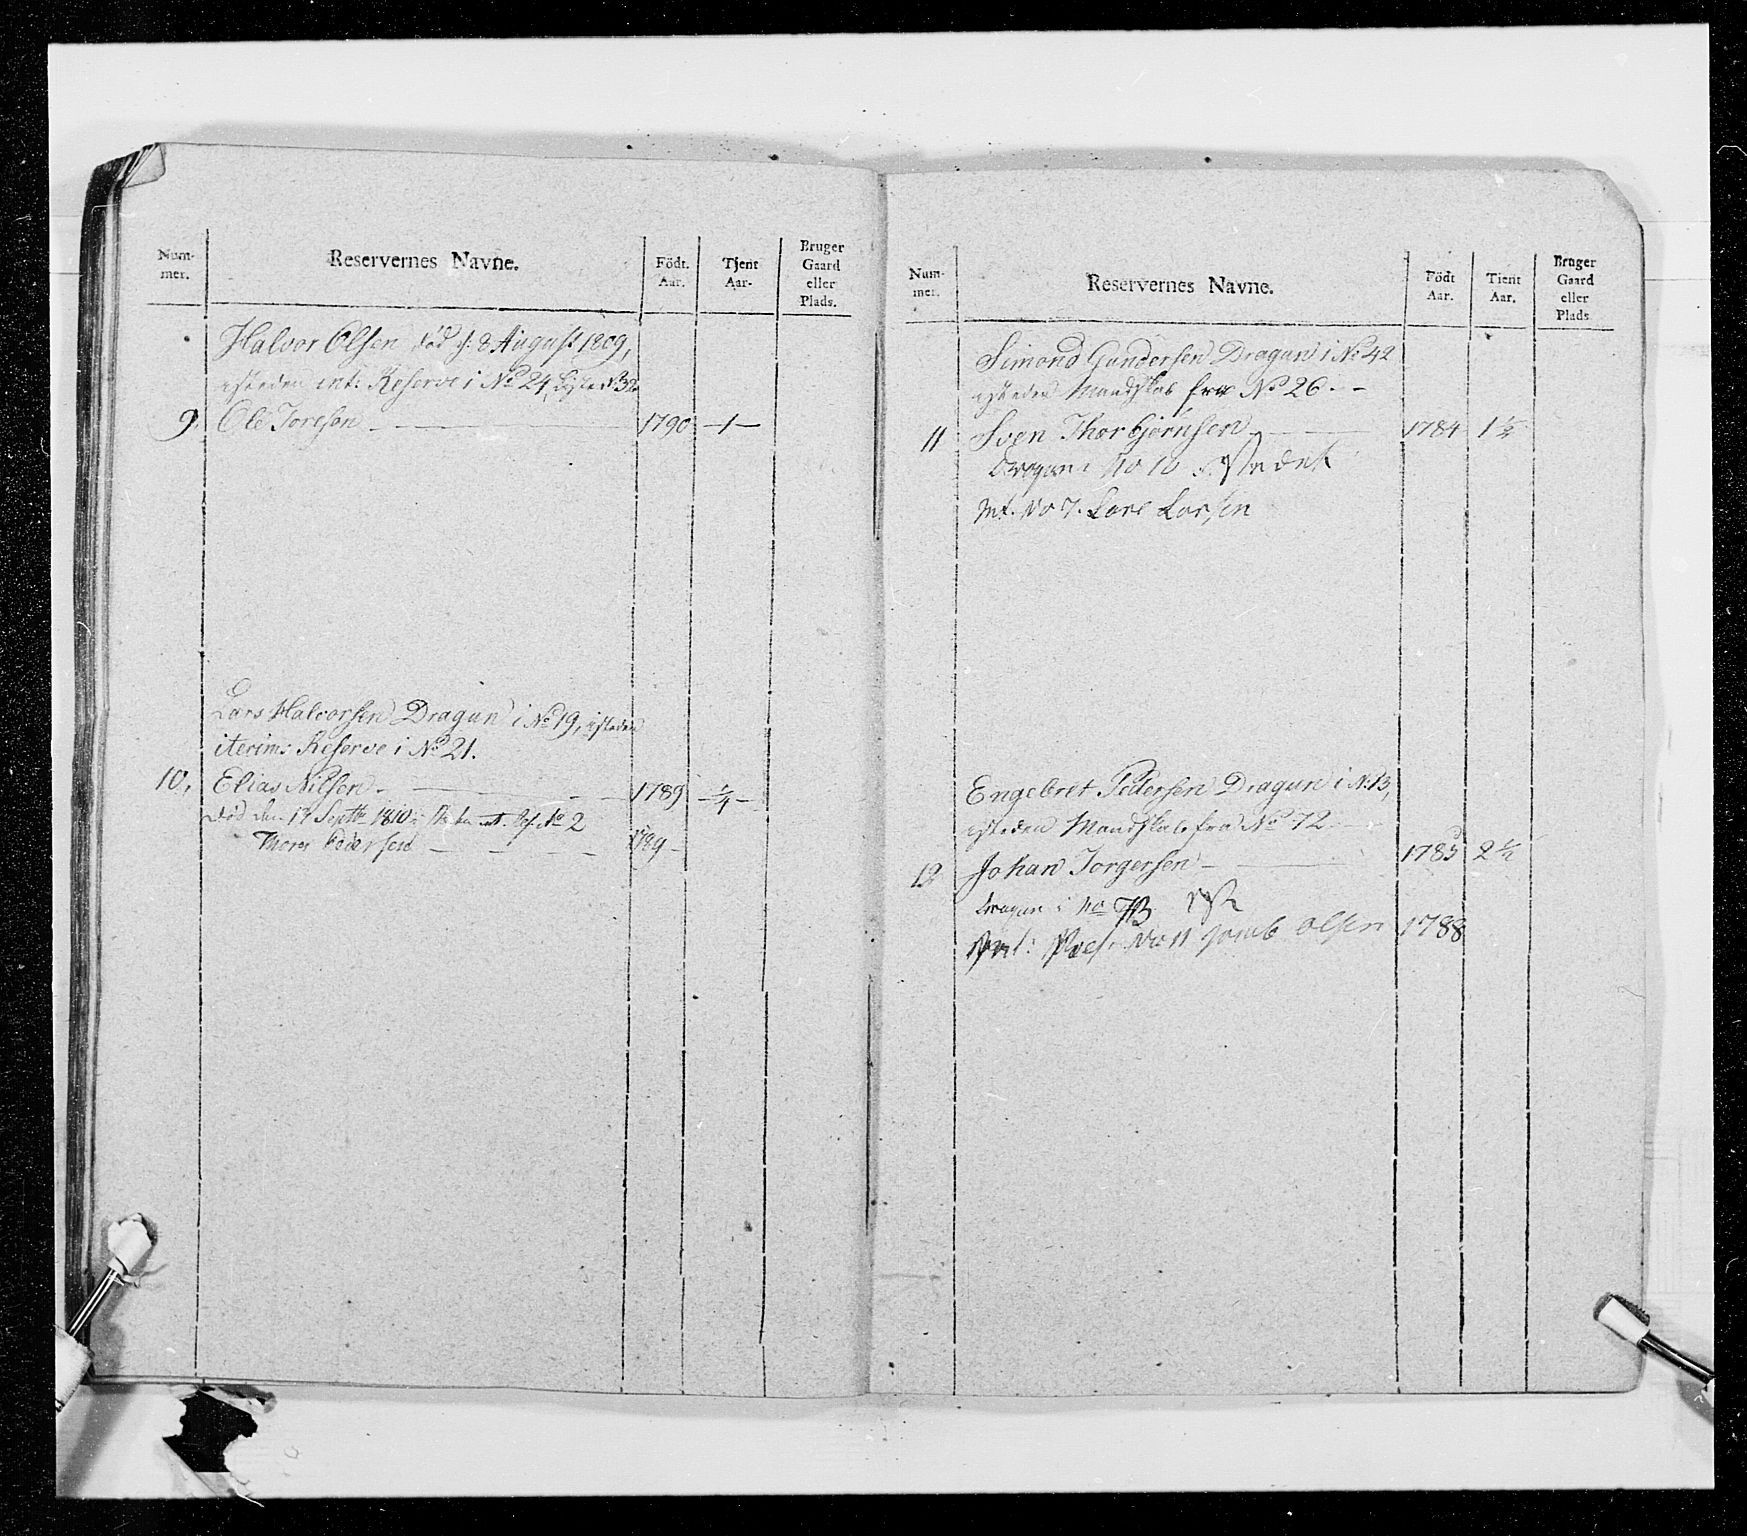 Num-
mer.
Reservernes Navne.
Födt.
Aar.
Tjent
Aar-
Bruger
Gaard
eller
Plads.
Halvor Olsen død d: 8 August 1809,
isteden int: Reserve i No 24,
9. Ole Toresen 1790 1
Lars Halvorsen Dragun i No 19, isteden
iterims Reserve i No 21.
10. Elias Nilsen 1789 1/4
død den 17 Septbr 1810 No 2
Thores Pedersen 1789
Num-
mer.
Reservernes Navne.
Födt
Aar.
Tient
Aar.
Bruger
Gaard
eller
Plads
Simond Gundersen Dragun i No 42
isteden Mandskab fra No 26.
11 Sven Thorbjørnsen 1784 1 1/2
Dragun i No 10 istedet
Int. No 7. Lars Larsen
Engebret Pedersen Dragun i No 13,
isteden Mandskab fra No 72
12 Johan Jorgersen 1785 2 1/2
Dragun i No
Int: Res: No 11 Jacob Olsen 1788